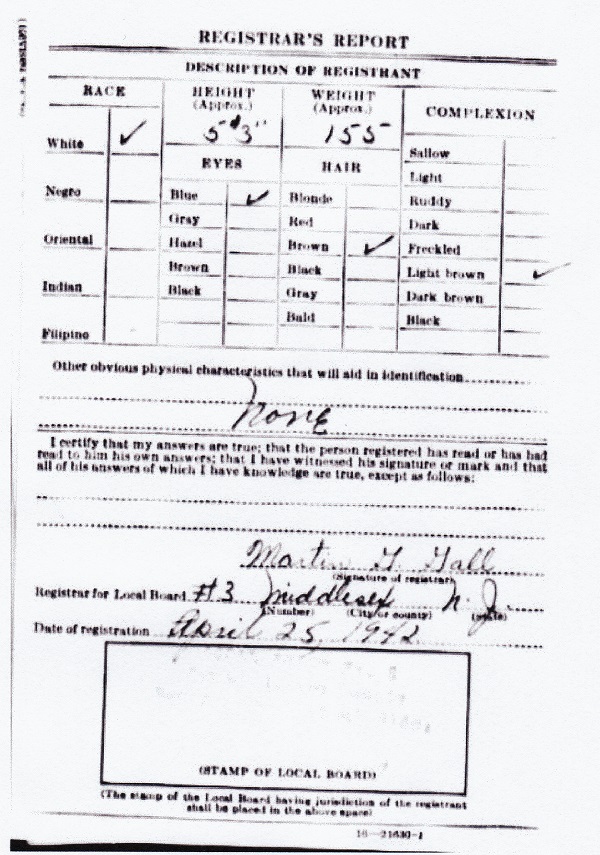 REGISTRAR'S REPORT
DESCRIPTION OF REGISTRANT
RACE
HEIGHT
(Approx.)
WEIGHT
(Approx.)
COMPLEXION
5' 3"
155
White ✓
EYES
HAIR
Sallow
Light
Negro
Blue ✓
Blonde
Ruddy
Gray
Red
Dark
Oriental
Hazel
Brown ✓
Freckled
Brown
Black
Light brown ✓
Indian
Black
Gray
Dark brown
Bald
Black
Filipino
Other obvious physical characteristics that will aid in identification
None
I certify that my answers are true; that the person registered has read or has had
read to him his own answers; that I have witnessed his signature or mark and that
all of his answers of which I have knowledge are true, except as follows:
Martin G. Gall
(Signature of registrar)
Registrar for Local Board #3 Middlesex N. J.
(Number) (City or county) (State)
Date of registration April 25, 1942
(STAMP OF LOCAL BOARD)
(The stamp of the Local Board having jurisdiction of the registrant
shall be placed in the above space)
16—21630-1